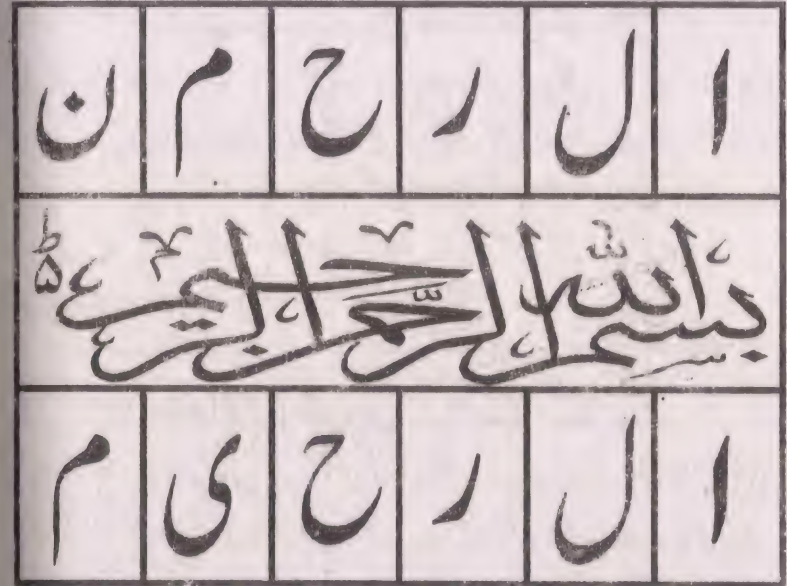 ا ل ر ح م ن
بسم الله الرحمن الرحيم ط ۵
ا ل ر ح ی م